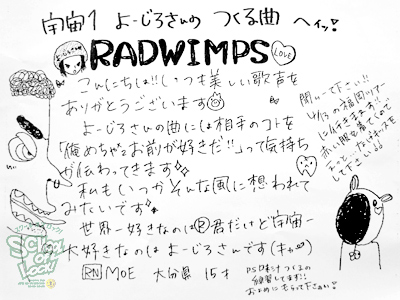 宇宙1 よーじろさんの つくる曲 へイッ!
RADWIMPS
LOVE
こんにちは!!いつも美しい歌声を
ありがとうございます
よーじろさんの曲には相手のコトを
「俺めちゃ2お前が好きだ!!」って気持ち
が伝わってきます
私もいつかそんな風に想われて
みたいです
世界一好きなのは君だけど宇宙一
大好きなのはよーじろさんです(キャ
RN MOE 大分県 15才
聞いて下さい!!
4/13の福岡ツアー
に行きます
赤い服を着てるので
して下さい
SCHOOL
OF
LOCK!
PS 味汁つくるの
練習してます!!
およめにもらって下さい